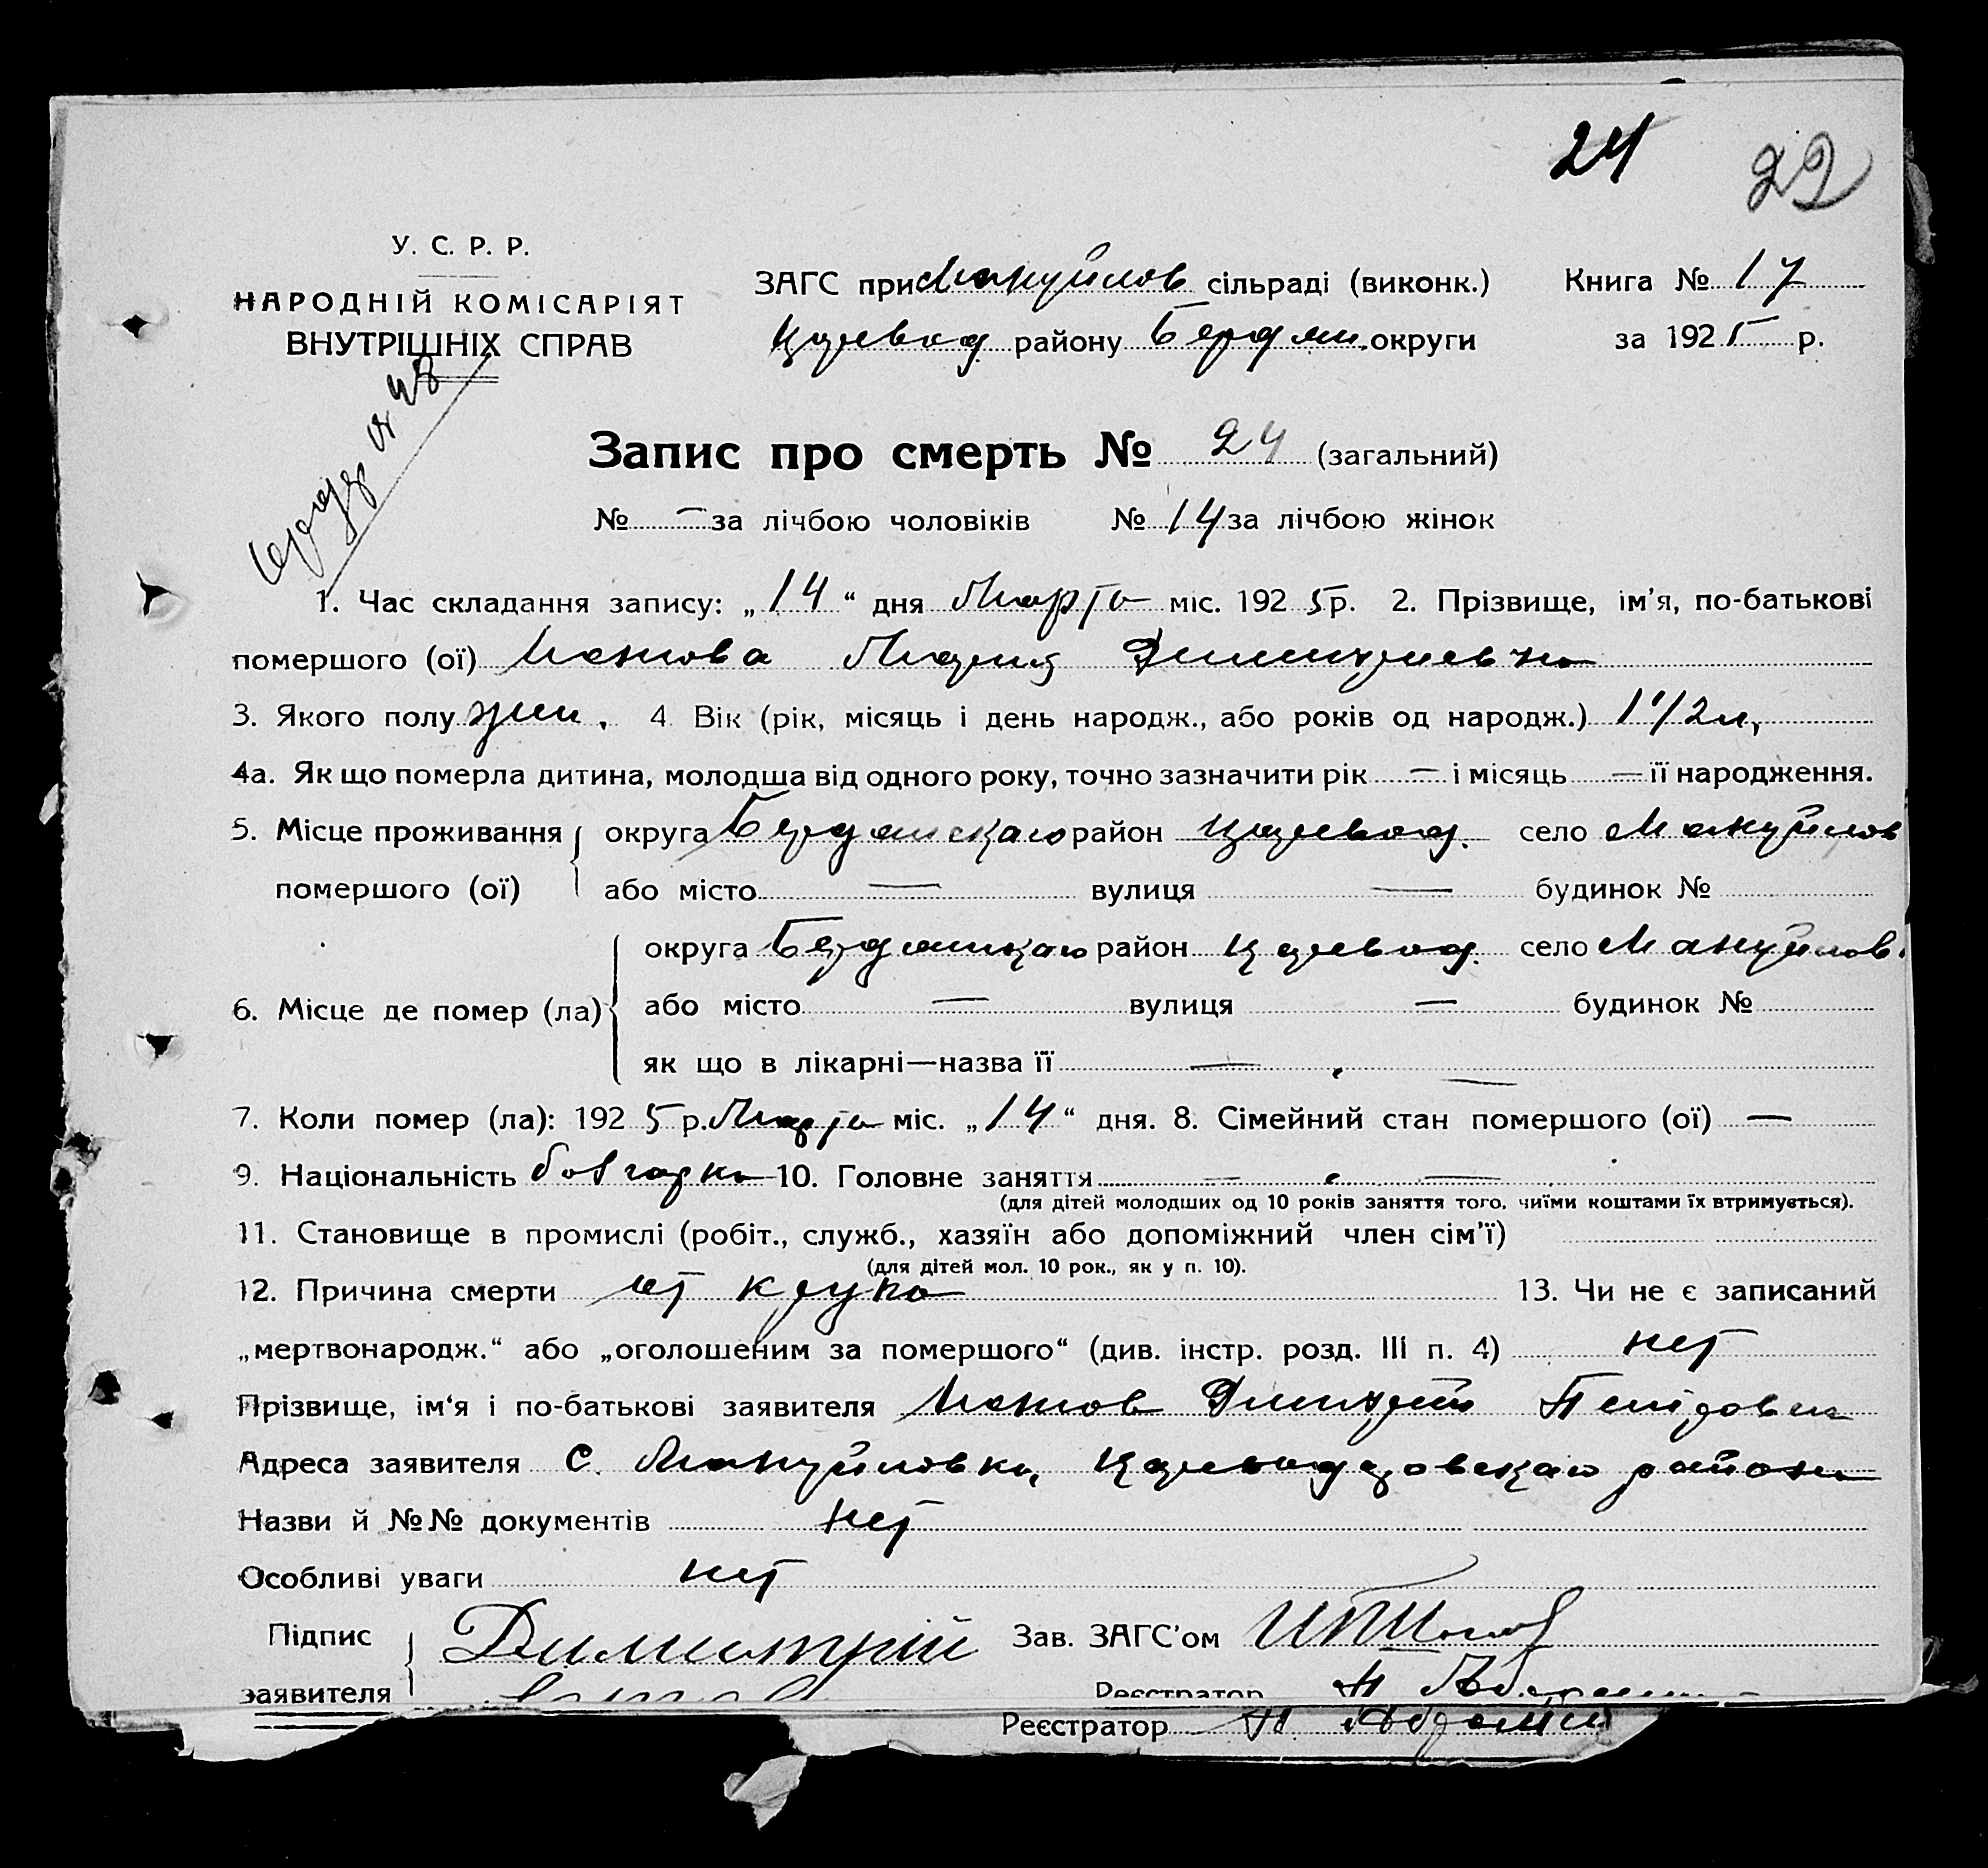 24 22
У. С. Р. Р.
НАРОДНІЙ КОМІСАРІЯТ
ВНУТРІШНІХ СПРАВ
ЗАГС при Мануйлов сільраді (виконк.) Книга № 17
району Бердян. округи за 1925 р.
Запис про смерть № 24 (загальний)
№ — за лічбою чоловіків № 14 за лічбою жінок
1. Час складання запису: „14“ дня Марта міс. 1925 р. 2. Прізвище, ім'я, по-батькові
помершого (ої) Мария
3. Якого полу жен. 4. Вік (рік, місяць і день народж., або років од народж.) 1 1/2 л,
4а. Як що померла дитина, молодша від одного року, точно зазначити рік — і місяць — її народження.
5. Місце проживання округа район село Мануйлов
помершого (ої) або місто — вулиця — будинок №
округа район село Мануйлов.
6. Місце де помер (ла) або місто — вулиця — будинок №
як що в лікарні—назва її — —
7. Коли помер (ла): 1925 р. Марта міс. „14“ дня. 8. Сімейний стан помершого (ої) —
9. Національність болгарка 10. Головне заняття — —
(для дітей молодших од 10 років заняття того, чиїми коштами їх втримується).
11. Становище в промислі (робіт., служб., хазяїн або допоміжний член сім'ї)
(для дітей мол. 10 рок., як у п. 10).
12. Причина смерти от крупа 13. Чи не є записаний
„мертвонародж.“ або „оголошеним за помершого“ (див. інстр. розд. III п. 4) нет
Прізвище, ім'я і по-батькові заявителя Дмитрий
Адреса заявителя с. Мануйловка, района
Назви й №№ документів нет
Особливі уваги нет
Підпис Димитрій Зав. ЗАГС'ом
заявителя Реєстратор
Реєстратор